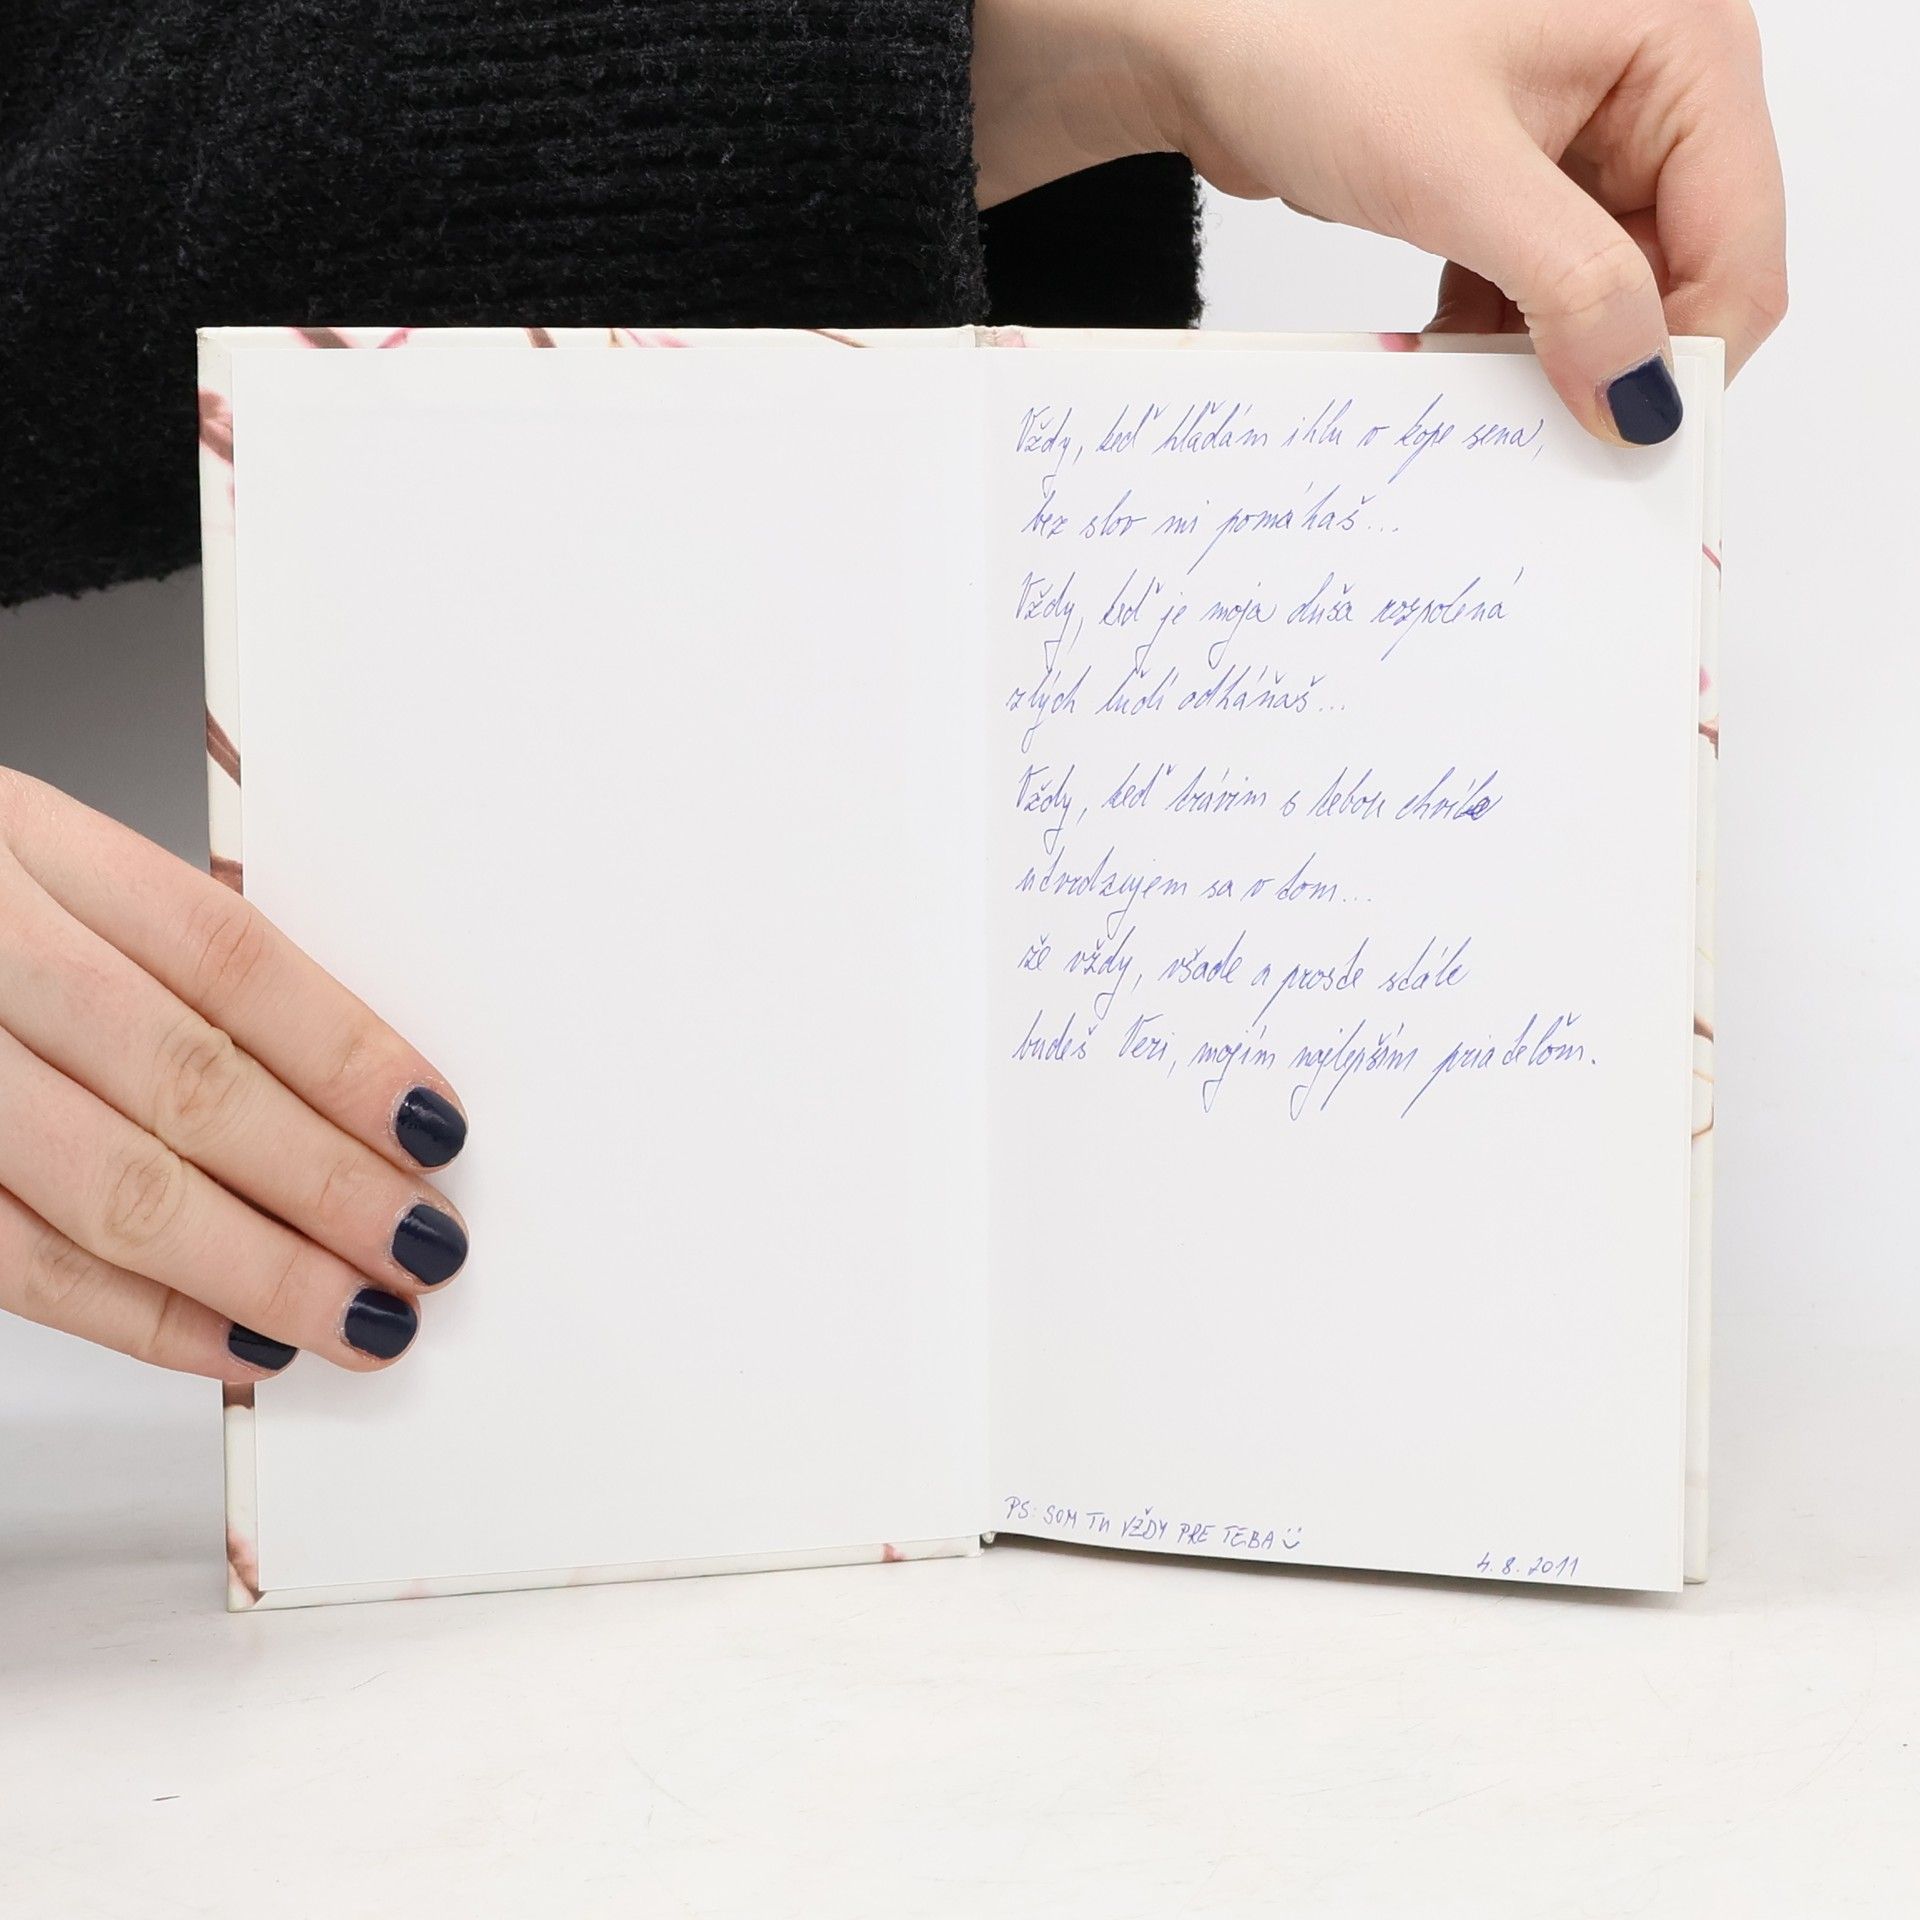 Vždy, keď hľadám ihlu v kope sena,
bez slov mi pomáhaš...
Vždy, keď je moja duša rozpolená
zlých ľudí odháňaš...
Vždy, keď trávim s tebou chvíle
utvrdzujem sa v tom...
že vždy, všade a proste stále
budeš Veri, mojím najlepším priateľom.
PS: SOM TU VŽDY PRE TEBA ☺
4.8.2011